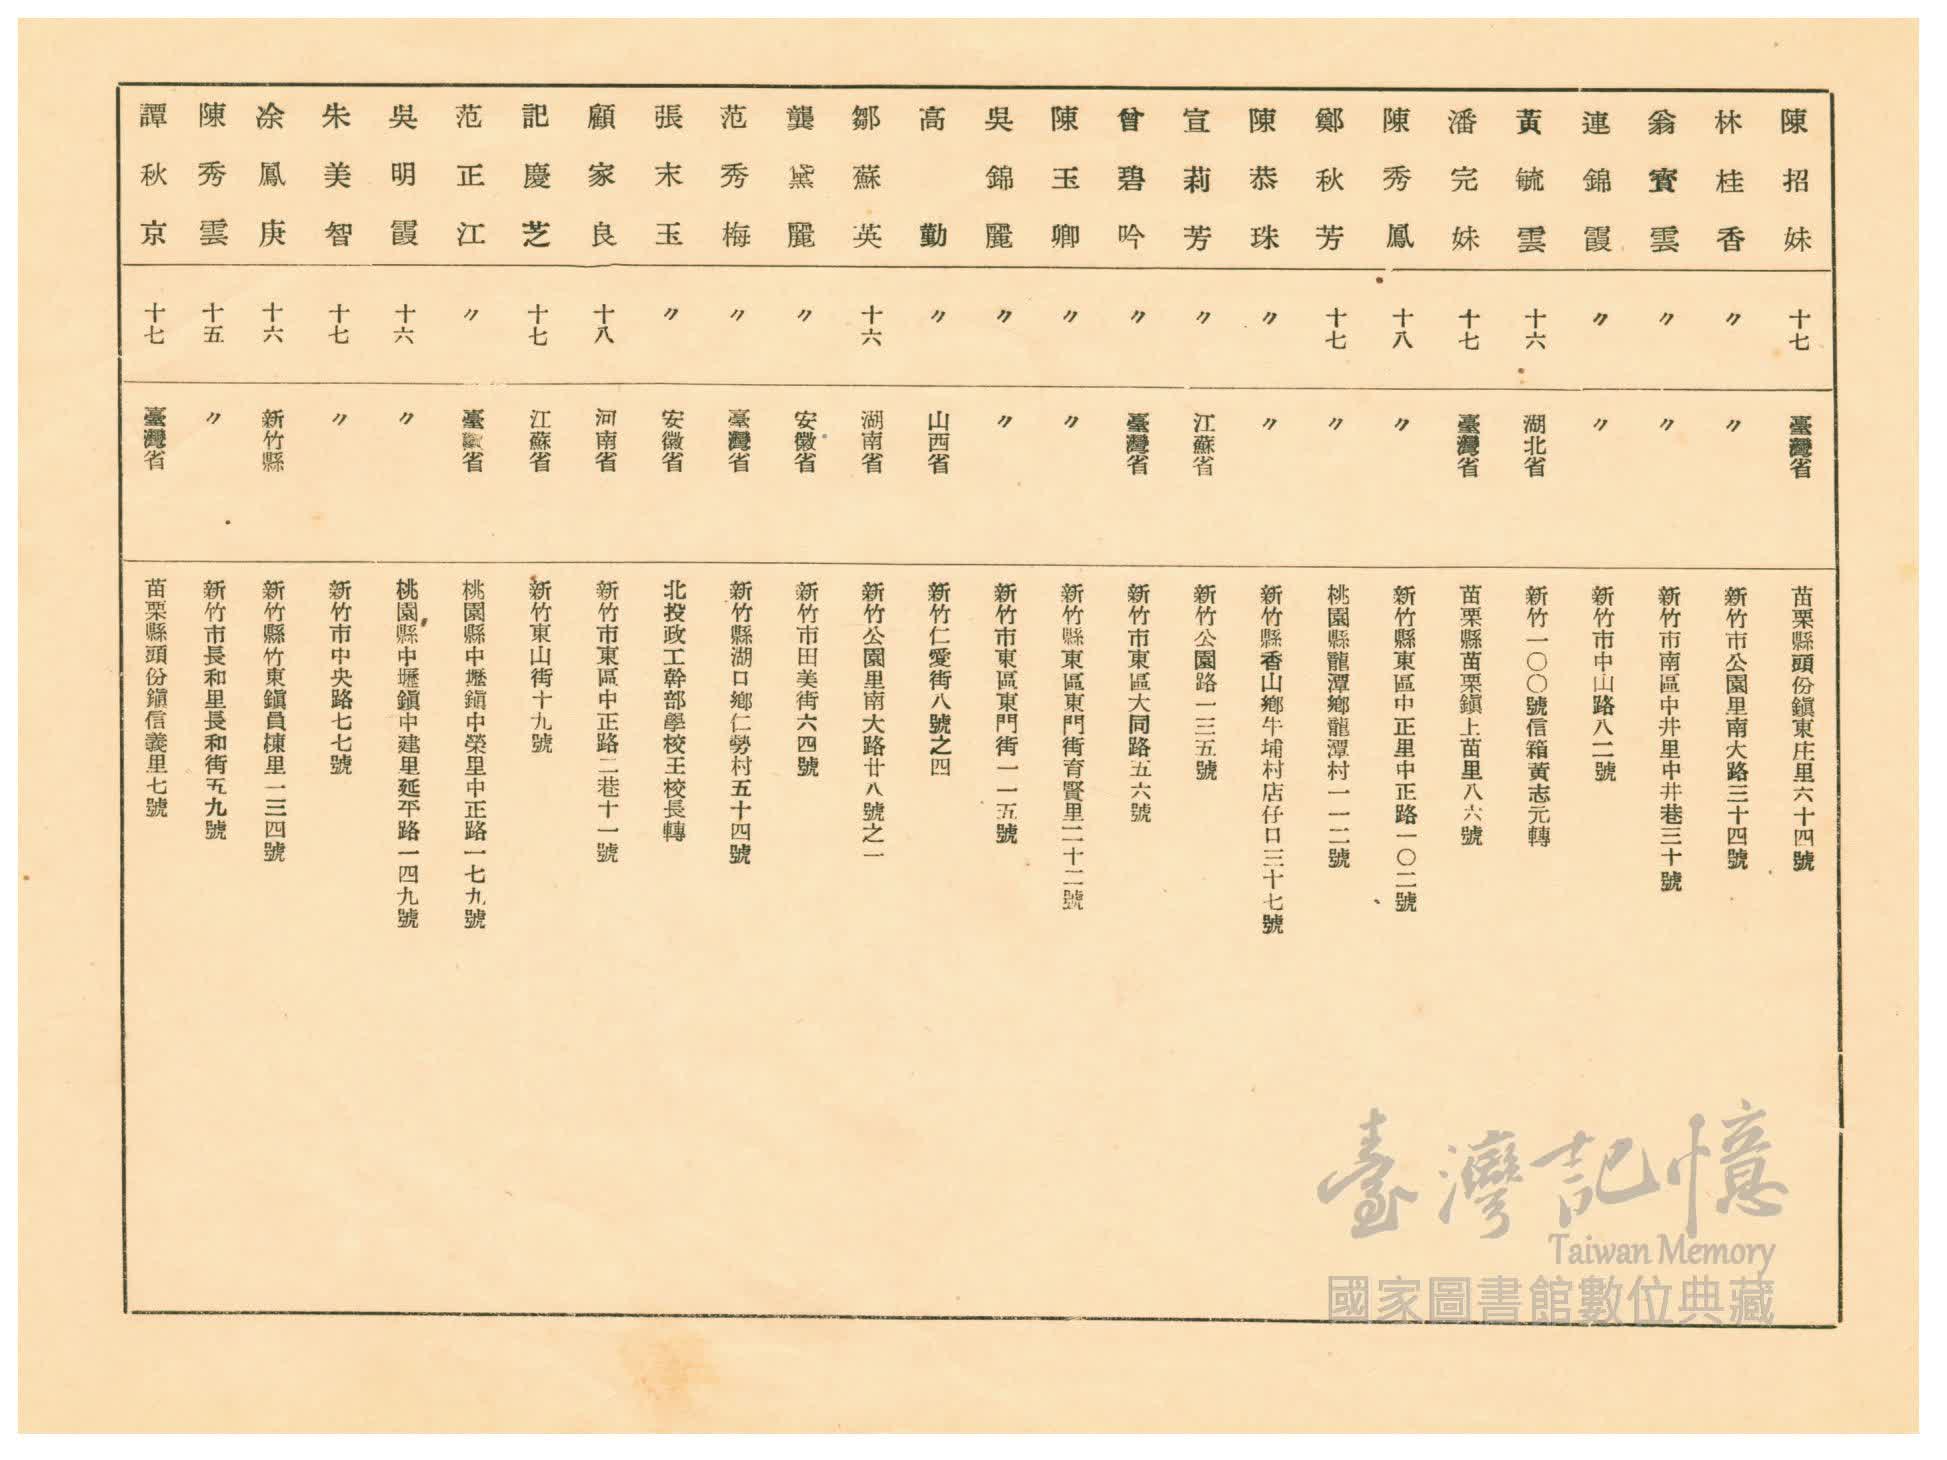 陳招妹 十七 臺灣省 苗栗縣頭份鎭東庄里六十四號
林桂香 〃 〃 新竹市公園里南大路三十四號
翁寳雲 〃 〃 新竹市南區中井里中井巷三十號
連錦霞 〃 〃 新竹市中山路八二號
黃毓雲 十六 湖北省 新竹一〇〇號信箱黃志元轉
潘完妹 十七 臺灣省 苗栗縣苗栗鎭上苗里八六號
陳秀鳳 十八 〃 新竹縣東區中正里中正路一〇二號
鄭秋芳 十七 〃 桃園縣龍潭鄕龍潭村一一二號
陳恭珠 〃 〃 新竹縣香山鄕牛埔村店仔口三十七號
宣莉芳 〃 江蘇省 新竹公園路一三五號
曾碧吟 〃 臺灣省 新竹市東區大同路五六號
陳玉卿 〃 〃 新竹縣東區東門街育賢里二十二號
吳錦麗 〃 〃 新竹市東區東門街一一五號
高勤 〃 山西省 新竹仁愛街八號之四
鄒蘇英 十六 湖南省 新竹公園里南大路廿八號之一
龔黛麗 〃 安徽省 新竹市田美街六四號
范秀梅 〃 臺灣省 新竹縣湖口鄕仁勢村五十四號
張末玉 〃 安徽省 北投政工幹部學校王校長轉
顧家良 十八 河南省 新竹市東區中正路二巷十一號
記慶芝 十七 江蘇省 新竹東山街十九號
范正江 〃 臺灣省 桃園縣中壢鎭中榮里中正路一七九號
吳明霞 十六 〃 桃園縣中壢鎭中建里延平路一四九號
朱美智 十七 〃 新竹市中央路七七號
凃鳳庚 十六 新竹縣 新竹縣竹東鎭員棟里一三四號
陳秀雲 十五 〃 新竹市長和里長和街五九號
譚秋京 十七 臺灣省 苗栗縣頭份鎭信義里七號
臺灣記憶
Taiwan Memory
國家圖書館數位典藏